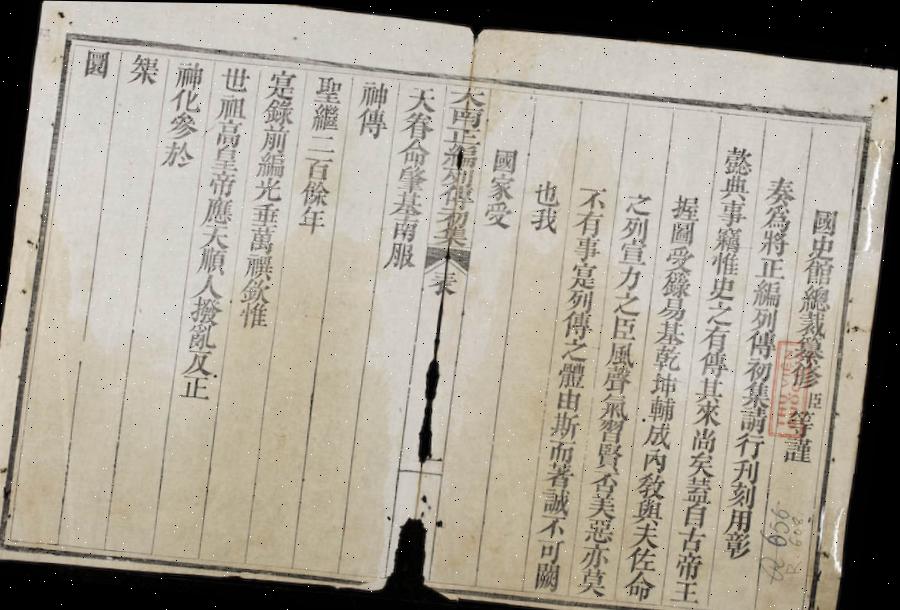 國史館總裁纂修臣等謹
奏為將正編列傳初集請行刊刻用彰
懿典事竊惟史之有傳其來尚矣蓋自古帝王
握圖受籙易基乾坤輔成內敎與夫佐命
之列宣力之臣風聲氣習賢否美惡亦莫
不有事寔列傳之體由斯而著誠不可闕
也我
國家受
大南正編列傳初集 表 一
天眷命肇基南服
神傳
聖繼二百餘年
寔錄前編光垂萬禩欽惟
世祖高皇帝應天順人撥亂反正
神化參於
榘
圜